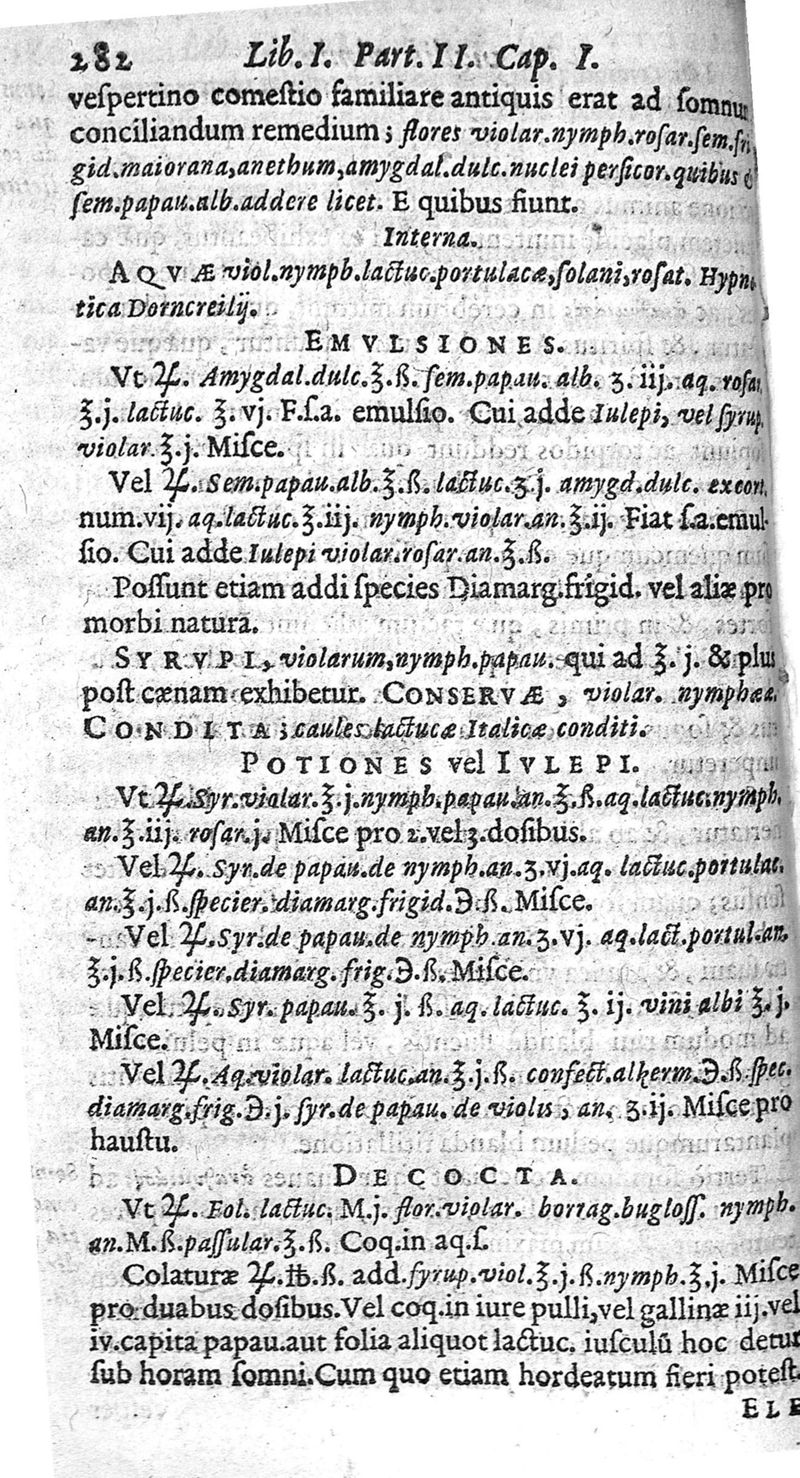 282 Lib. I. Part. II. Cap. I.
veſpertino comeſtio familiare antiquis erat ad ſomnum
conciliandum remedium; flores violar.nymph.roſar.ſem.fri
gid.maiorana,anethum,amygdal.dulc.nuclei perſicor.quibus &
ſem.papau.alb.addere licet. E quibus fiunt.
Interna.
AQVÆ viol.nymph.lactuc.portulacæ,ſolani,roſat. Hypno
tica Dorncreilij.
EMVLSIONES.
Vt ♃. Amygdal.dulc.℥.ß. ſem.papau. alb. ʒ. iij. aq. roſar.
℥.j. lactuc. ℥. vj. F.ſ.a. emulſio. Cui adde Iulepi, vel ſyrup.
violar.℥.j. Miſce.
Vel ♃. Sem.papau.alb.℥.ß. lactuc.ʒ.j. amygd.dulc. excort.
num.vij. aq.lactuc.℥.iij. nymph.violar.an.℥.ij. Fiat ſ.a.emul-
ſio. Cui adde Iulepi violar.roſar.an.℥.ß.
Poſſunt etiam addi ſpecies Diamarg.frigid. vel aliæ pro
morbi naturâ.
SYRVPI, violarum,nymph.papau. qui ad ℥. j. & plus
poſt cænam exhibetur. CONSERVÆ, violar. nymphææ.
CONDITA; caules lactucæ Italicæ conditi.
POTIONES vel IVLEPI.
Vt ♃.Syr.violar.℥.j.nymph.papau.an.℥.ß.aq.lactuc.nymph.
an.℥.iij. roſar.j. Miſce pro 2.vel 3.doſibus.
Vel ♃. Syr.de papau.de nymph.an.ʒ.vj.aq. lactuc.portulac.
an.℥.j.ß.ſpecier.diamarg.frigid.℈.ß. Miſce.
Vel ♃.Syr.de papau.de nymph.an.ʒ.vj. aq.lact.portul.an.
℥.j.ß.ſpecier.diamarg.frig.℈.ß. Miſce.
Vel ♃. Syr.papau. ℥. j. ß. aq. lactuc. ℥. ij. vini albi ℥.j.
Miſce.
Vel ♃. Aq.violar. lactuc.an.℥.j.ß. confect.alkerm.℈.ß.ſpec.
diamarg.frig.℈.j. ſyr.de papau. de violis, an. ʒ.ij. Miſce pro
hauſtu.
DECOCTA.
Vt ♃. Fol. lactuc. M.j. flor.violar. borrag.bugloſſ. nymph.
an.M.ß.paſſular.℥.ß. Coq.in aq.ſ.
Colaturæ ♃.℔.ß. add.ſyrup.viol.℥.j.ß.nymph.℥.j. Miſce
pro duabus doſibus.Vel coq.in iure pulli,vel gallinæ iij.vel
iv.capita papau.aut folia aliquot lactuc. iuſculū hoc detur
ſub horam ſomni.Cum quo etiam hordeatum fieri poteſt.
ELE